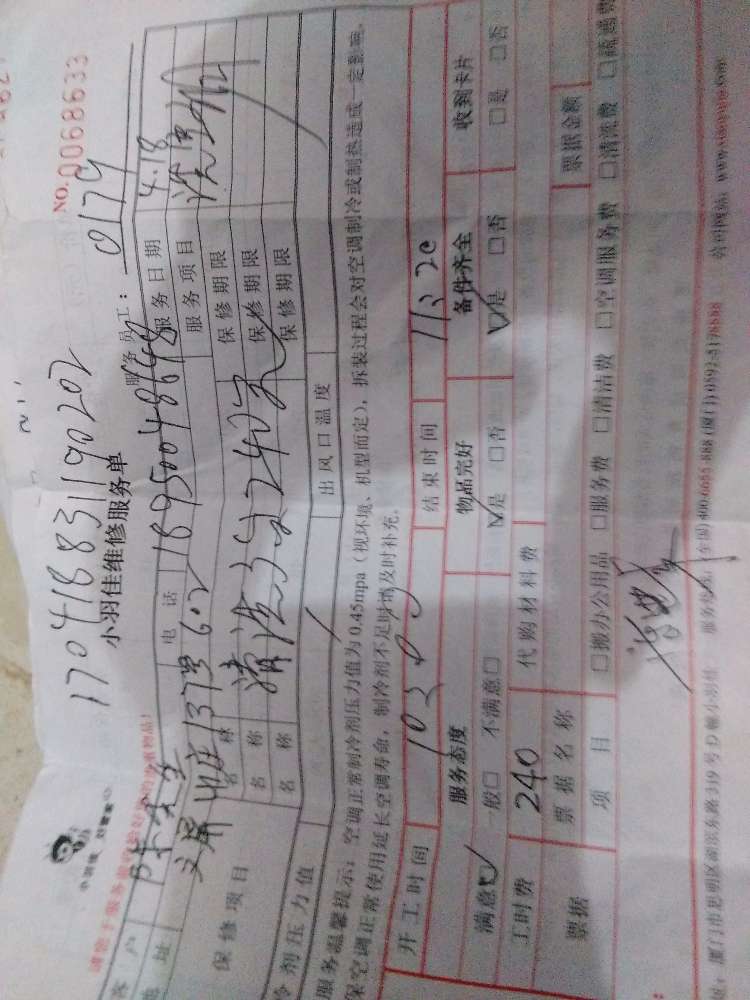 NO.0068633
170418831190202
小羽佳维修服务单
服务员工： 0179
客户 陈先生 电话 18950048648 服务日期 4.18
地址 文屏山庄137号602 服务项目
保修项目 名称 清洗3台240元 保修期限
名称 保修期限
名称 保修期限
冷剂压力值 出风口温度
服务温馨提示：空调正常制冷剂压力值为0.45mpa（视环境、机型而定），拆装过程会对空调制冷或制热造成一定影响。
保空调正常使用延长空调寿命，制冷剂不足时请及时补充。
开工时间 1030 结束时间 1320
服务态度 物品完好 备件齐全 收到卡片
满意☑ 一般□ 不满意□ ☑是 □否 ☑是 □否 □是 □否
工时费 240 代购材料费
票据 票据名称 票据金额
项目 □搬办公用品 □服务费 □清洁费 □空调服务费 □清洗费 □疏通费